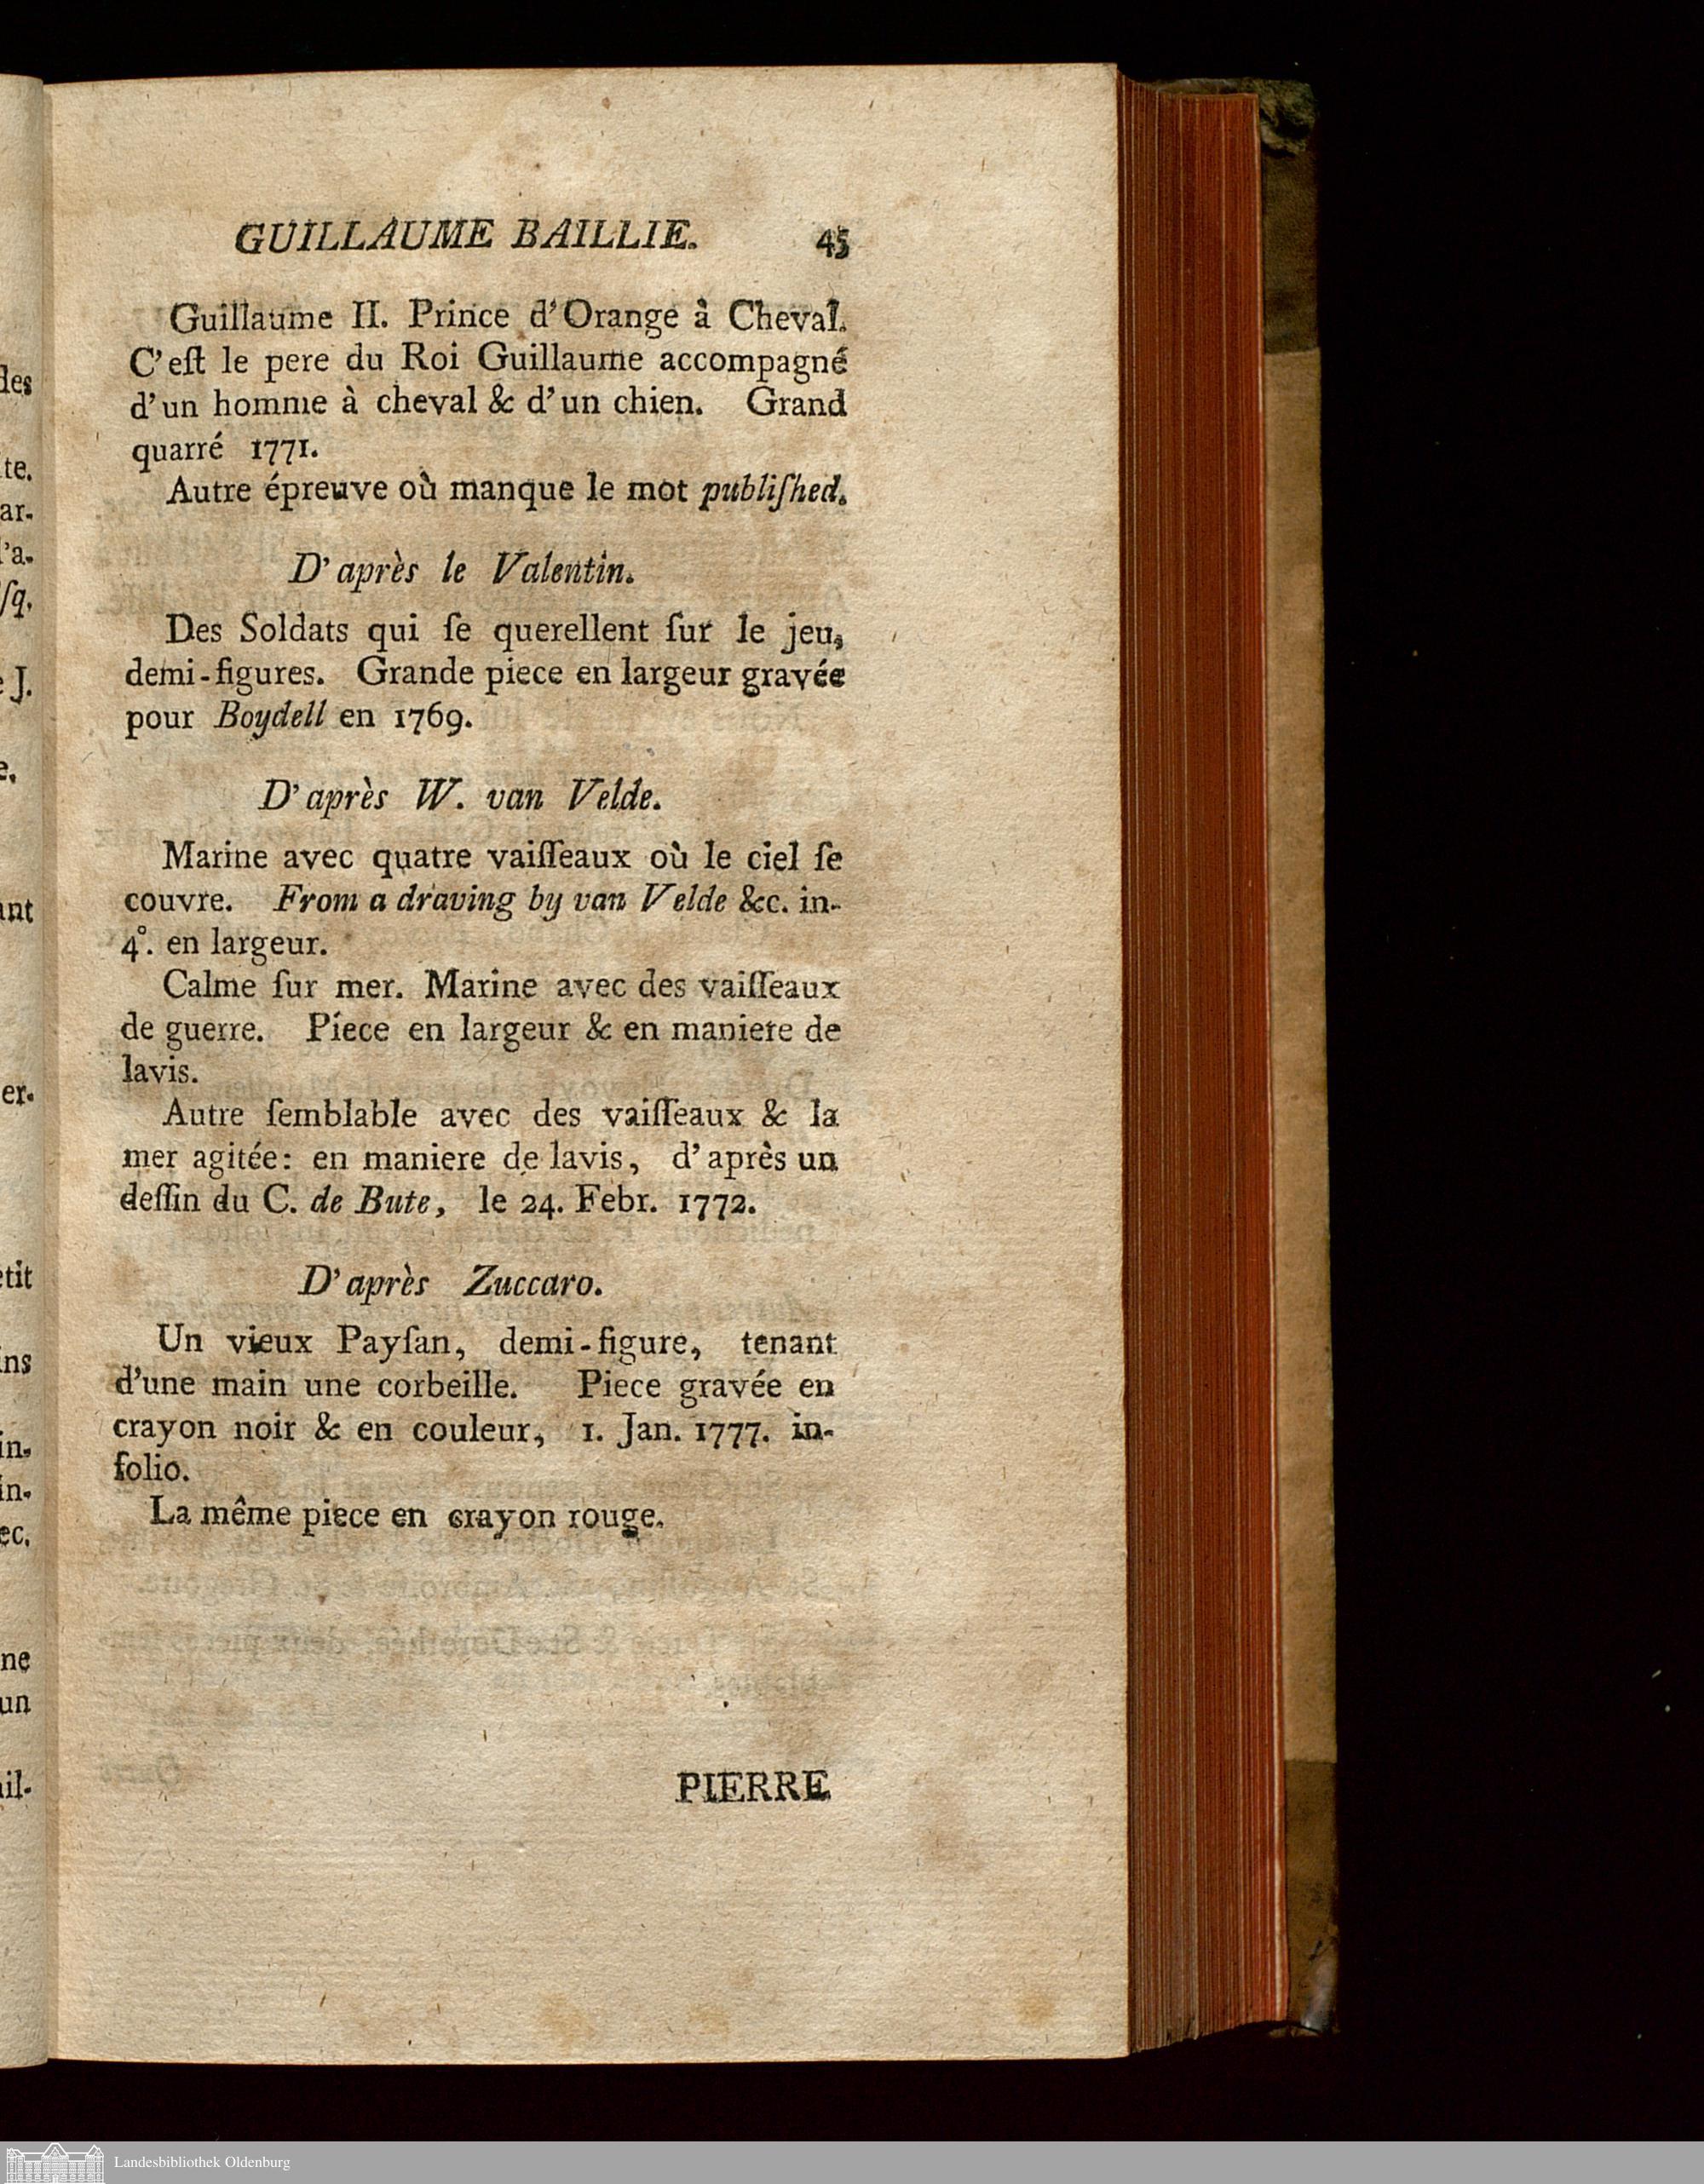 GUILLAUME BAILLIE. 45
Guillaume II. Prince d'Orange à Cheval.
C'eſt le pere du Roi Guillaume accompagné
d'un homme à cheval & d'un chien. Grand
quarré 1771.
Autre épreuve où manque le mot publiſhed.
D'après le Valentin.
Des Soldats qui ſe querellent ſur le jeu,
demi-figures. Grande piece en largeur gravée
pour Boydell en 1769.
D'après W. van Velde.
Marine avec quatre vaiſſeaux où le ciel ſe
couvre. From a draving by van Velde &c. in-
4°. en largeur.
Calme ſur mer. Marine avec des vaiſſeaux
de guerre. Piece en largeur & en maniere de
lavis.
Autre ſemblable avec des vaiſſeaux & la
mer agitée: en maniere de lavis, d'après un
deſſin du C. de Bute, le 24. Febr. 1772.
D'après Zuccaro.
Un vieux Payſan, demi-figure, tenant
d'une main une corbeille. Piece gravée en
crayon noir & en couleur, 1. Jan. 1777. in-
folio.
La même piece en crayon rouge.
PIERRE
Landesbibliothek Oldenburg